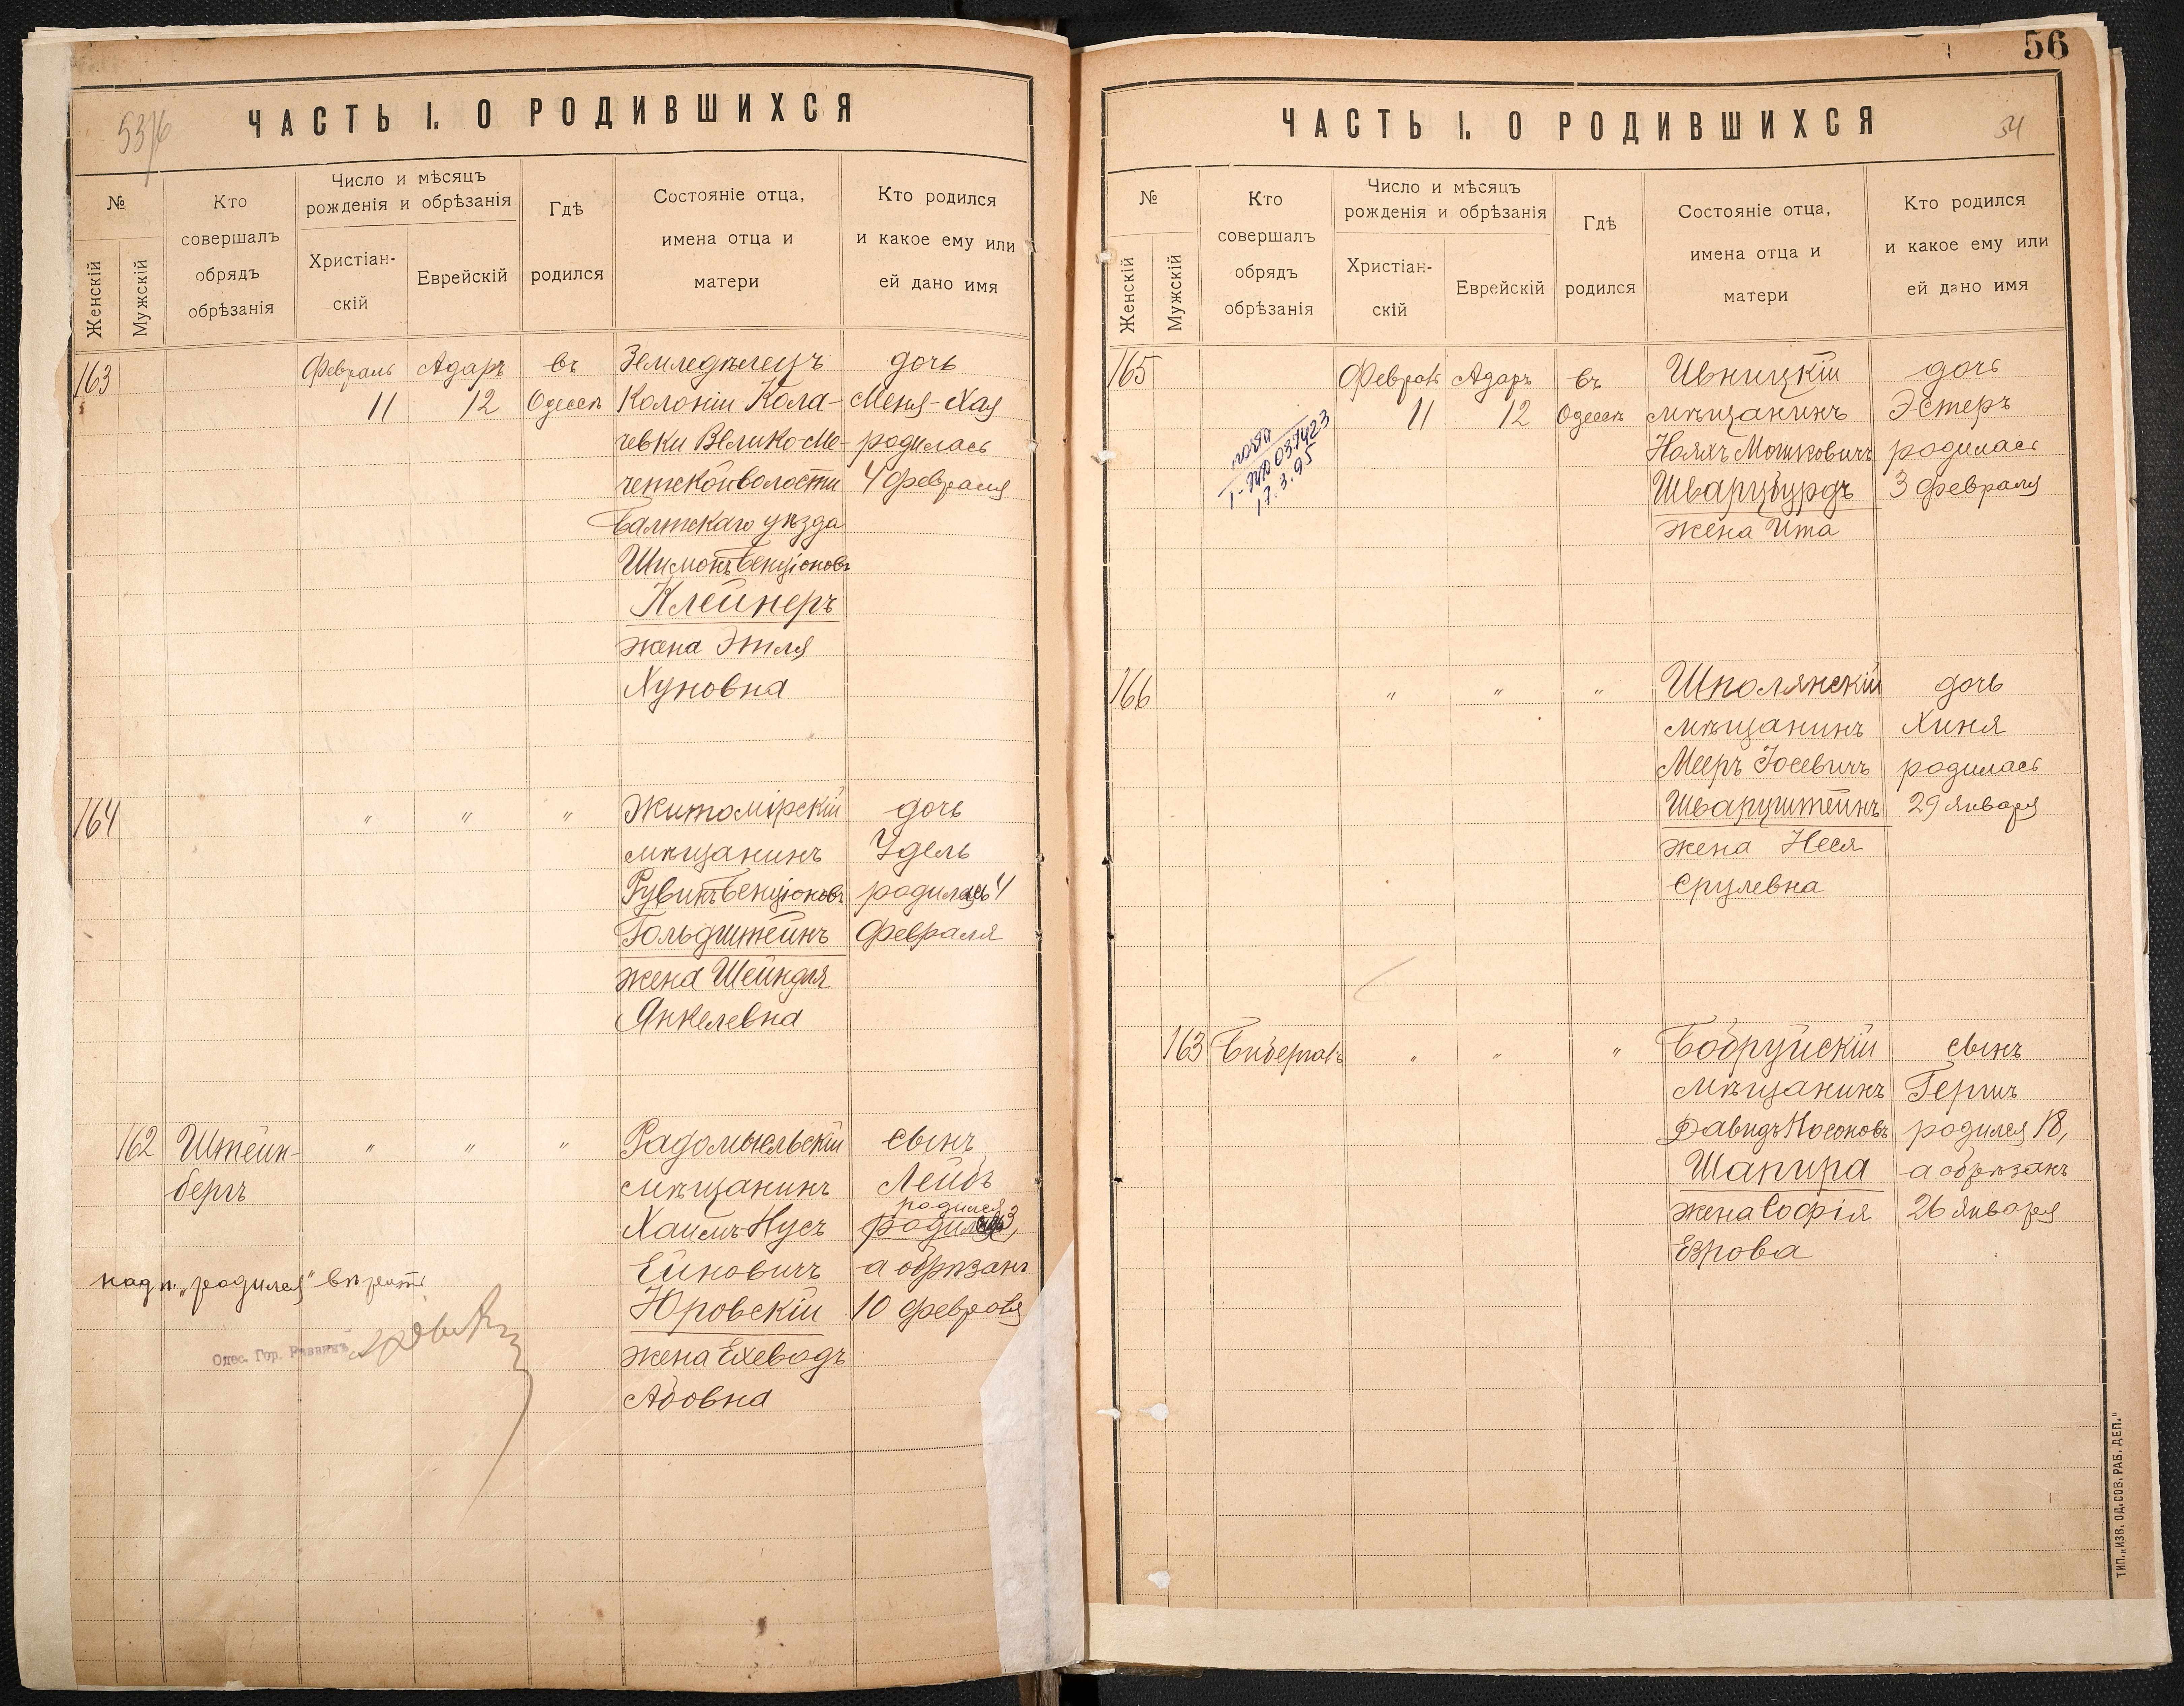 53/6
ЧАСТЬ I. О РОДИВШИХСЯ
№
Женскій
Мужскій
Кто
совершалъ
обрядъ
обрѣзанія
Число и мѣсяцъ
рожденія и обрѣзанія
Христіан-
скій
Еврейскій
Гдѣ
родился
Состояніе отца,
имена отца и
матери
Кто родился
и какое ему или
ей дано имя
163
Февраль
11
Адаръ
12
въ
Одессѣ
Земледѣлецъ
Колоніи Кола-
чевки Велико Ме-
четской волости
Балтскаго уѣзда
Шимонъ Бенціоновъ
Клейнеръ
жена Этля
Хуновна
дочь
Меня-Хая
родилась
4 февраля
164
"
"
"
Житомірскій
мѣщанинъ
Рувинъ Бенціоновъ
Гольдштейнъ
жена Шейндля
Янкелевна
дочь
Удель
родилась 4
февраля
162
Штейн-
бергъ
"
"
"
Радомысльскій
мѣщанинъ
Хаимъ-Нусъ
Ейновичъ
Юровскій
жена Ехеводъ
Абовна
сынъ
Лейбъ
родился
3,
а обрѣзанъ
10 февраля
надп. „родился" вѣрить
Одес. Гор. Раввинъ
56
ЧАСТЬ I. О РОДИВШИХСЯ
54
№
Женскій
Мужскій
Кто
совершалъ
обрядъ
обрѣзанія
Число и мѣсяцъ
рожденія и обрѣзанія
Христіан-
скій
Еврейскій
Гдѣ
родился
Состояніе отца,
имена отца и
матери
Кто родился
и какое ему или
ей дано имя
165
Февраль
11
Адаръ
12
въ
Одессѣ
Ивницкій
мѣщанинъ
Ноахъ Мошковичъ
Шварцбурдъ
жена Ита
дочь
Эстеръ
родилась
3 февраля
031423
17.3.95
166
"
"
"
Шполянскій
мѣщанинъ
Мееръ Іосевичъ
Шварцштейнъ
жена Неся
Срулевна
дочь
Хиня
родилась
29 января
163
"
"
"
Бобруйскій
мѣщанинъ
Давидъ Носоновъ
Шапира
жена Софія
Езрова
сынъ
Гершъ
родился 18,
а обрѣзанъ
26 января
ТИП. „ИЗВ. ОД. СОВ. РАБ. ДЕП."